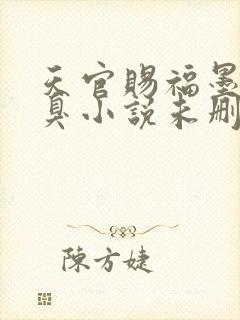 天官賜福墨
臭小說未刪
陳方婕